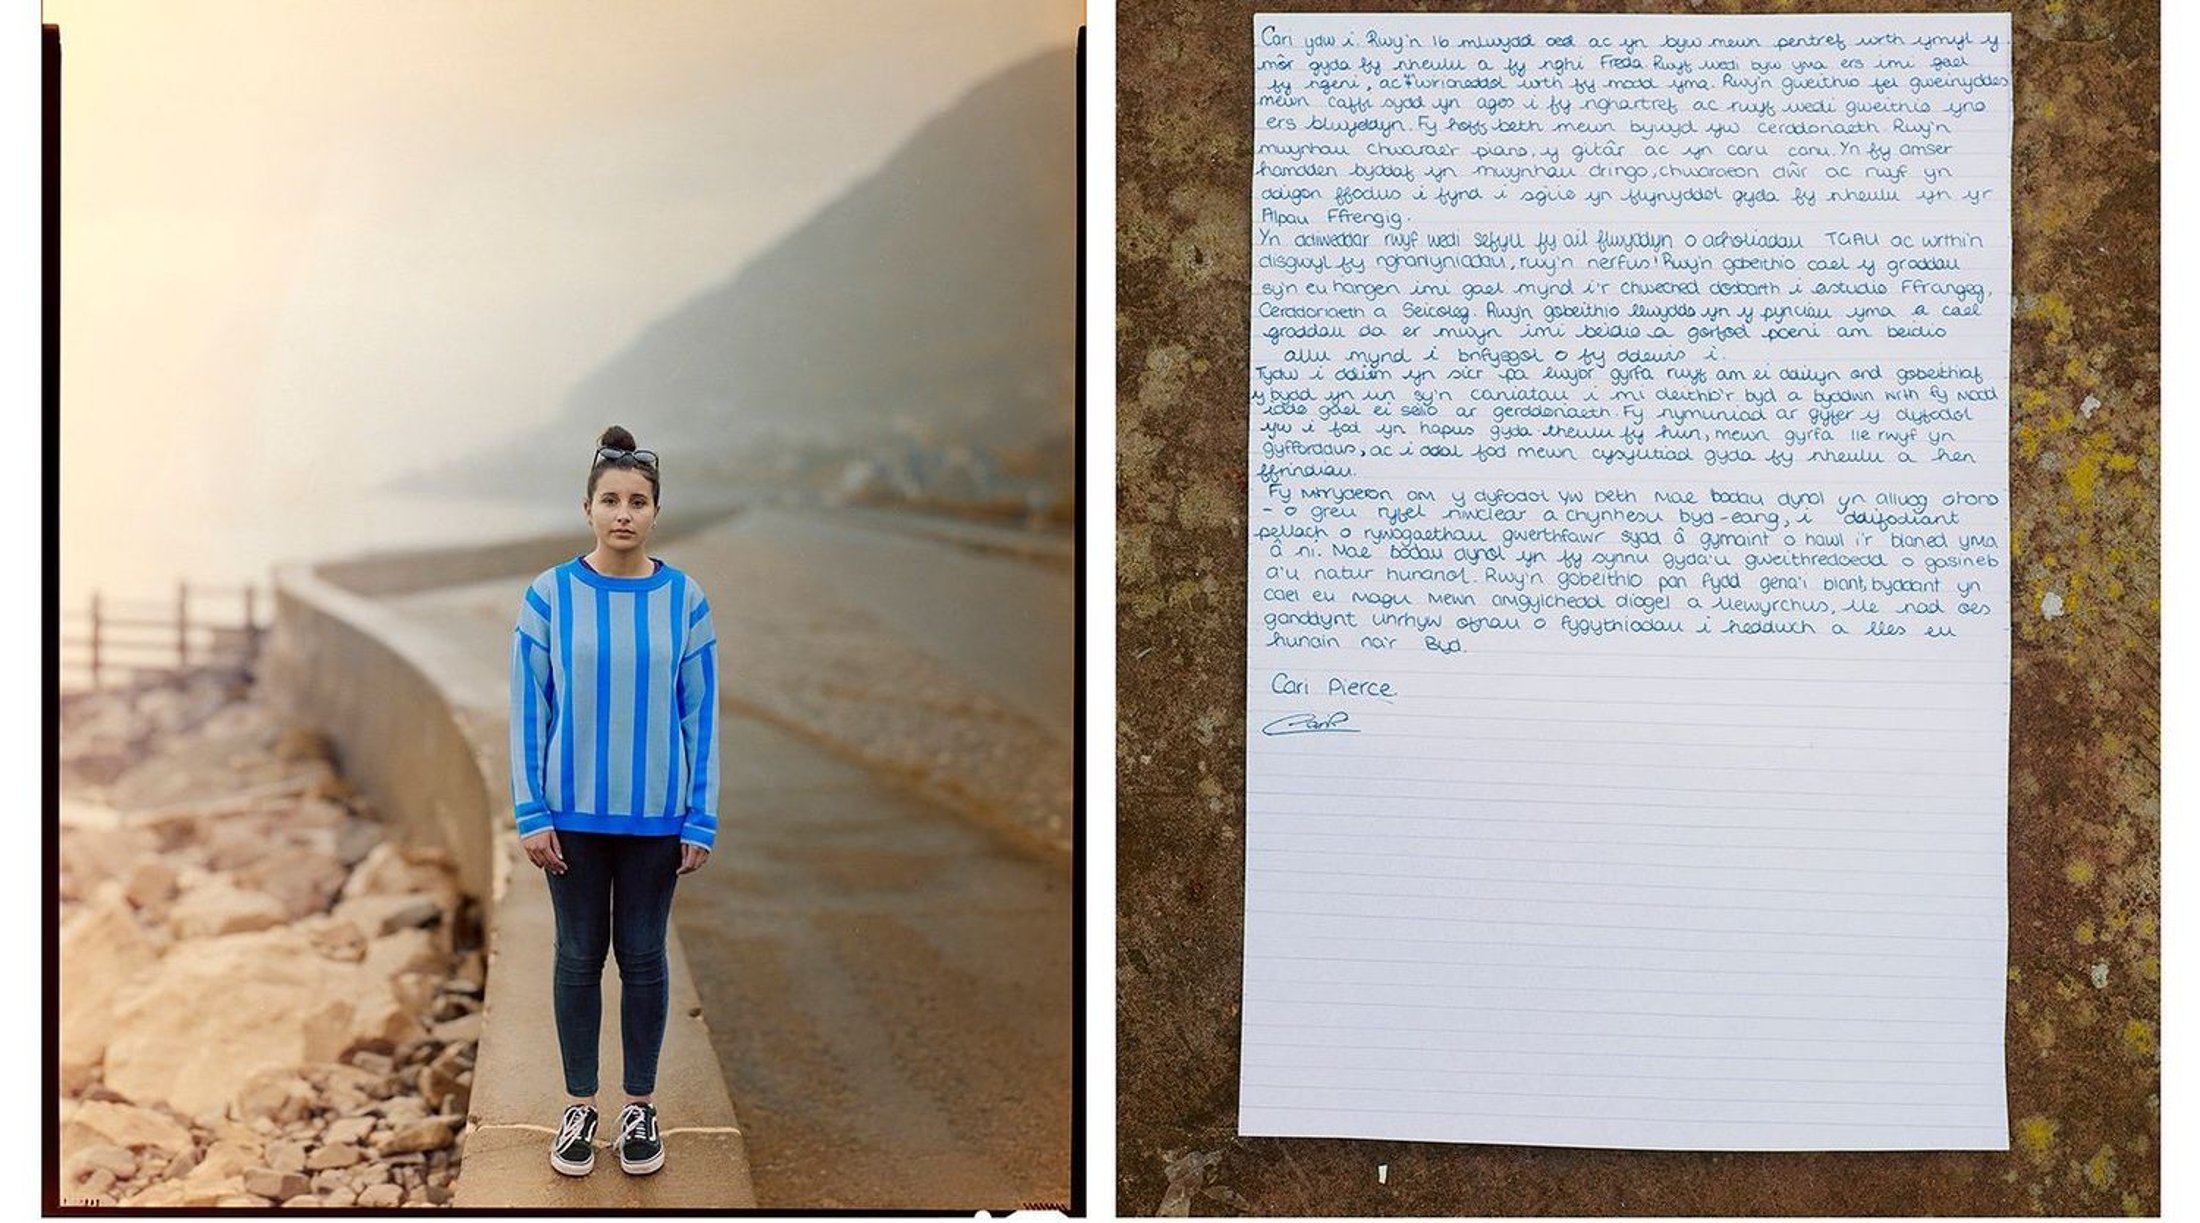 Cari ydw i. Rwy'n 16 mlwydd oed ac yn byw mewn pentref wrth ymyl y
môr gyda fy nheulu a fy nghi Freda. Rwyf wedi byw yma ers imi gael
fy ngeni, ac wrioneddol wrth fy modd yma. Rwy'n gweithio fel gweinyddes
mewn caffi sydd yn agos i fy nghartref ac rwyf wedi gweithio yno
ers blwyddyn. Fy hoff beth mewn bywyd yw cerddoriaeth. Rwy'n
mwynhau chwarae'r piano, y gitâr ac yn caru canu. Yn fy amser
hamdden byddaf yn mwynhau dringo, chwaraeon dŵr ac rwyf yn
ddigon ffodus i fynd i sgïio yn flynyddol gyda fy nheulu yn yr
Alpau Ffrengig.
Yn ddiweddar rwyf wedi sefyll fy ail flwyddyn o arholiadau TGAU ac wrthi'n
disgwyl fy nghanlyniadau, rwy'n nerfus! Rwy'n gobeithio cael y graddau
sy'n eu hangen imi gael mynd i'r chweched dosbarth i astudio Ffrangeg,
Cerddoriaeth a Seicoleg. Rwy'n gobeithio llwyddo yn y pynciau yma a cael
graddau da er mwyn imi beidio a gorfod poeni am beidio
allu mynd i brifysgol o fy ddewis i.
Tydw i ddim yn sicr pa lwybr gyrfa rwyf am ei ddilyn ond gobeithiaf
y bydd yn un sy'n caniatau i mi deithio'r byd a byddwn wrth fy modd
iddo gael ei selio ar gerddoriaeth. Fy nymuniad ar gyfer y dyfodol
yw i fod yn hapus gyda theulu fy hun, mewn gyrfa lle rwyf yn
gyfforddus, ac i ddal fod mewn cysylltiad gyda fy nheulu a hen
ffrindiau.
Fy mhryderon am y dyfodol yw beth mae bodau dynol yn alluog ohono
- o greu ryfel niwclear a chynhesu byd-eang, i ddifodiant
pellach o rywogaethau gwerthfawr sydd â gymaint o hawl i'r blaned yma
â ni. Mae bodau dynol yn fy synnu gyda'u gweithredoedd o gasineb
a'u natur hunanol. Rwy'n gobeithio pan fydd gena'i blant, byddant yn
cael eu magu mewn amgylchedd diogel a llewyrchus, lle nad oes
ganddynt unrhyw ofnau o fygythiadau i heddwch a lles eu
hunain na'r Byd.
Cari Pierce.